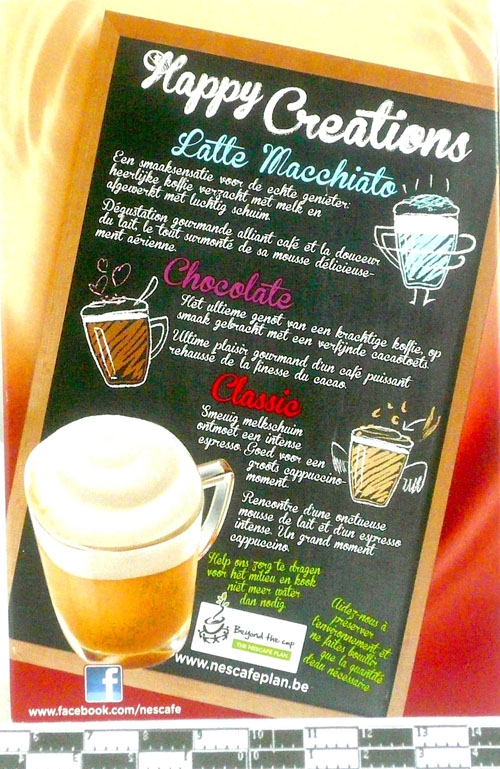 Happy Creations
Latte Macchiato
Een smaaksensatie voor de echte genieter:
heerlijke koffie verzacht met melk en
afgewerkt met luchtig schuim.
Dégustation gourmande alliant café et la douceur
du lait, le tout surmonté de sa mousse délicieuse-
ment aérienne.
Chocolate
Het ultieme genot van een krachtige koffie, op
smaak gebracht met een verfijnde cacaotoets.
Ultime plaisir gourmand d'un café puissant
rehaussé de la finesse du cacao.
Classic
Smeuig melkschuim
ontmoet een intense
espresso. Goed voor een
groots cappuccino-
moment.
Rencontre d'une onctueuse
mousse de lait et d'un espresso
intense. Un grand moment
cappuccino.
Help ons zorg te dragen
voor het milieu en kook
niet meer water
dan nodig.
Aidez-nous à
préserver
l'environnement et
ne faites bouillir
que la quantité
d'eau nécessaire
Beyond the cup
THE NESCAFÉ PLAN
www.nescafeplan.be
f
www.facebook.com/nescafe
5 6 7 8 9 10 11 12 13 14